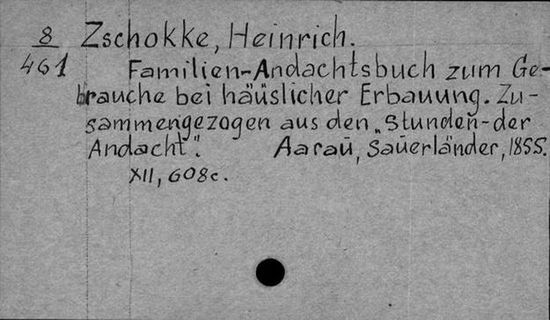 8 Zschokke, Heinrich.
461 Familien-Andachtsbuch zum Ge-
brauche bei häüslicher Erbauung. Zu-
sammengezogen aus den „Stunden-der
Andacht". Aaraŭ, Saŭerländer, 1855.
XII, 608c.